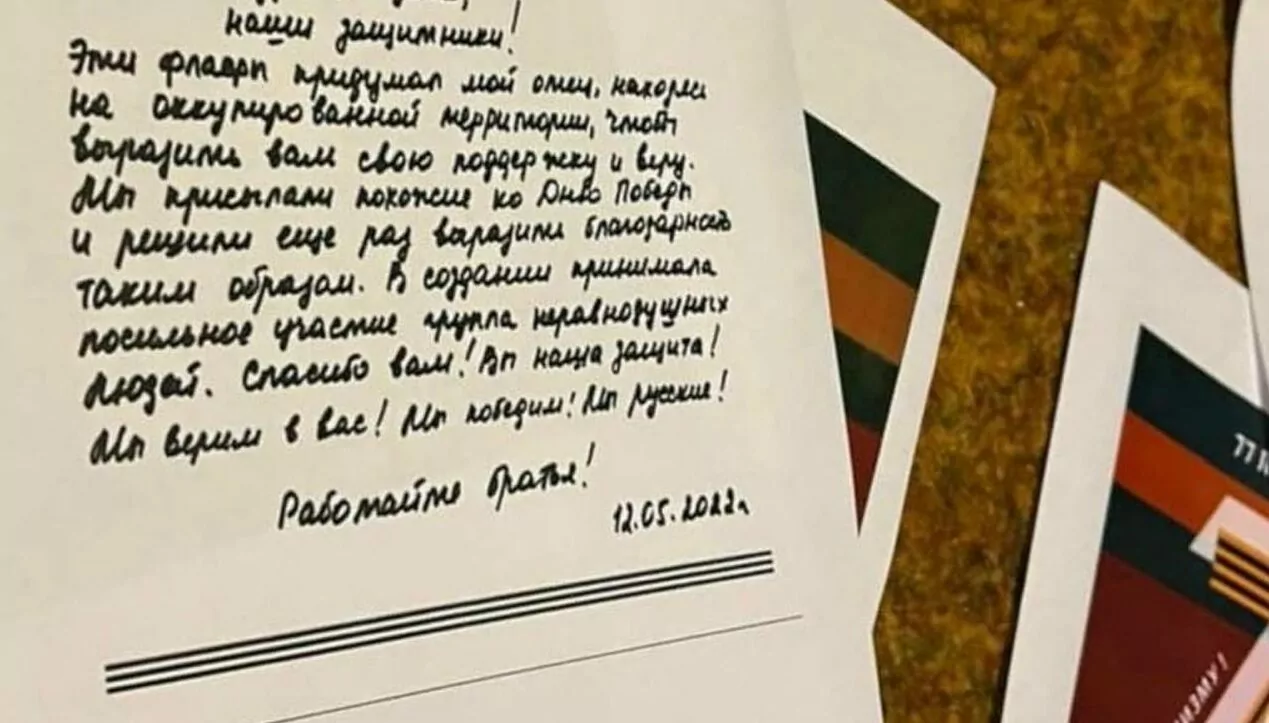 наши защитники!
Эти флаги придумал мой отец, находясь
на оккупированной территории, чтобы
выразить вам свою поддержку и веру.
Мы присылали похожие ко Дню Победы
и решили еще раз выразить благодарность
таким образом. В создании принимала
посильное участие группа неравнодушных
людей. Спасибо вам! Вы наша защита!
Мы верим в вас! Мы победим! Мы русские!
Работайте братья!
12.05.2022г
77